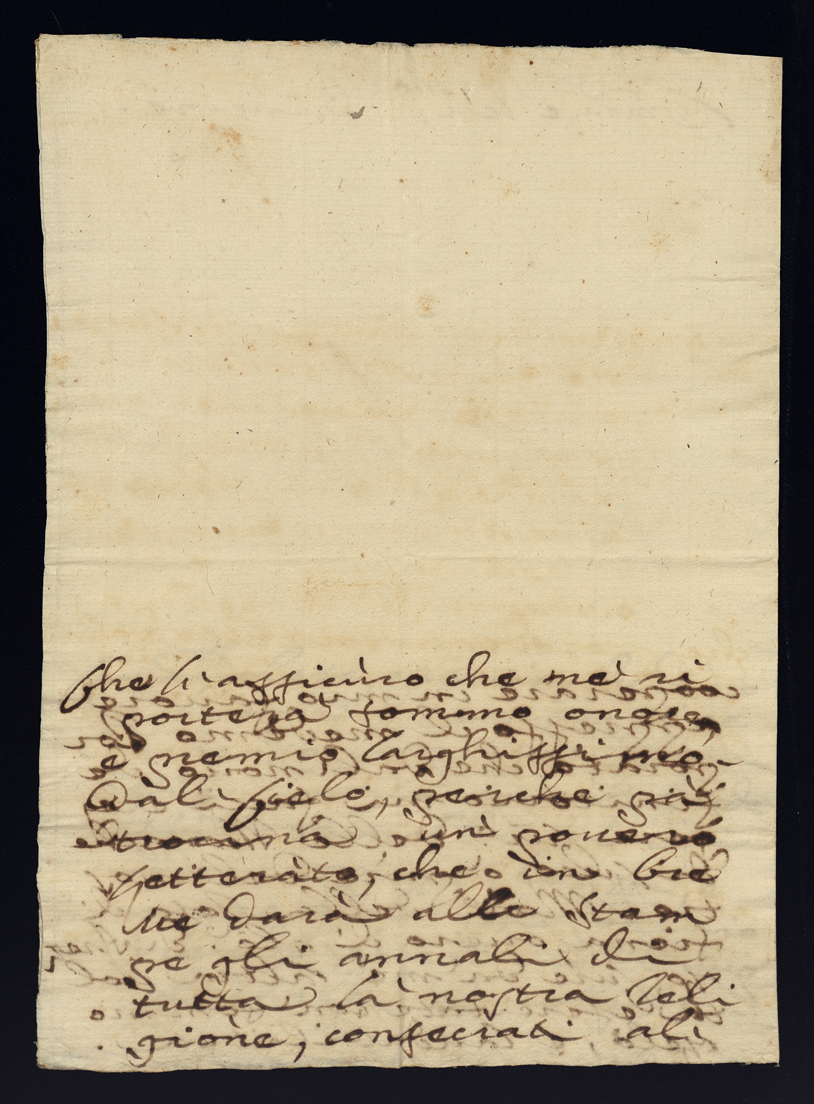 che li assicuro che me ri
porterà sommo onore,
e premio larghissimo
Dàl Cielo, perche pa
trocinà un pouerò
letterato, che in bre
ue darà alle Stam
pe gli annali di
tutta là nostra Reli
gione, consecrati ali